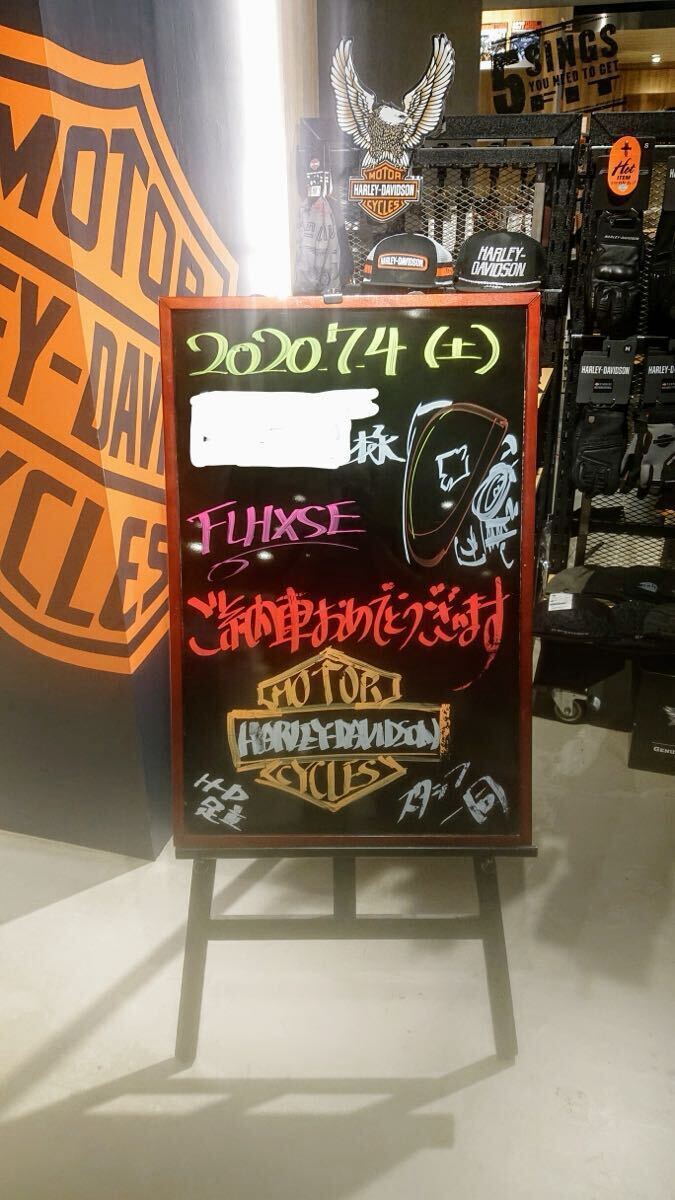 5 SINGS
YOU NEED TO GET
FIT
MOTOR
HARLEY-DAVIDSON
CYCLES
HARLEY-DAVIDSON
HARLEY-DAVIDSON
Hot
ITEM
S
MOTOR
EY-DAV
CYCLES
M
HARLEY-DAVIDSON
HARLEY
2020.7.4(土)
様
FLHXSE
ご納車おめでとうございます
MOTOR
HARLEY-DAVIDSON
CYCLES
H-D
足立
スタッフ
一同
GENU